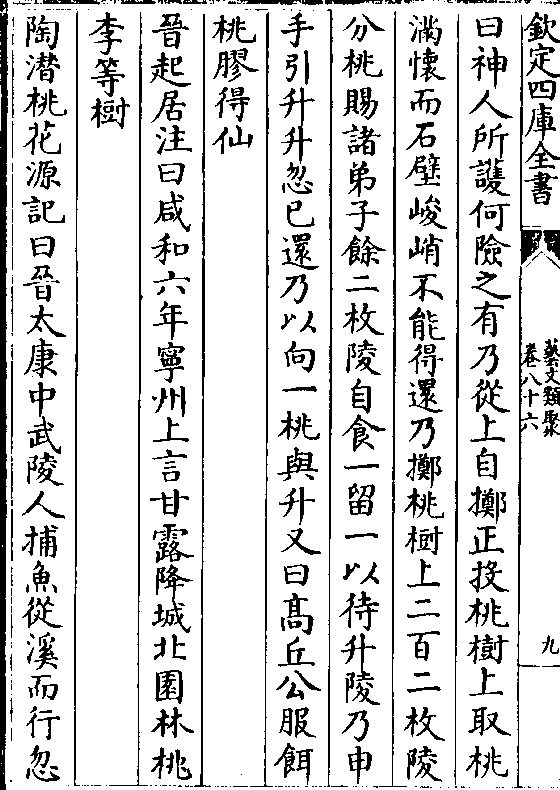 欽定四庫全書
藝文類聚
卷八十六
九
曰神人所䕶何險之有乃從上自擲正投桃樹上取桃
滿懷而石壁峻峭不能得還乃擲桃樹上二百二枚陵
分桃賜諸弟子餘二枚陵自食一留一以待升陵乃申
手引升升忽已還乃以向一桃與升又曰髙丘公服餌
桃膠得仙
晉起居注曰咸和六年寧州上言甘露降城北園林桃
李等樹
陶潛桃花源記曰晉太康中武陵人捕魚從溪而行忽